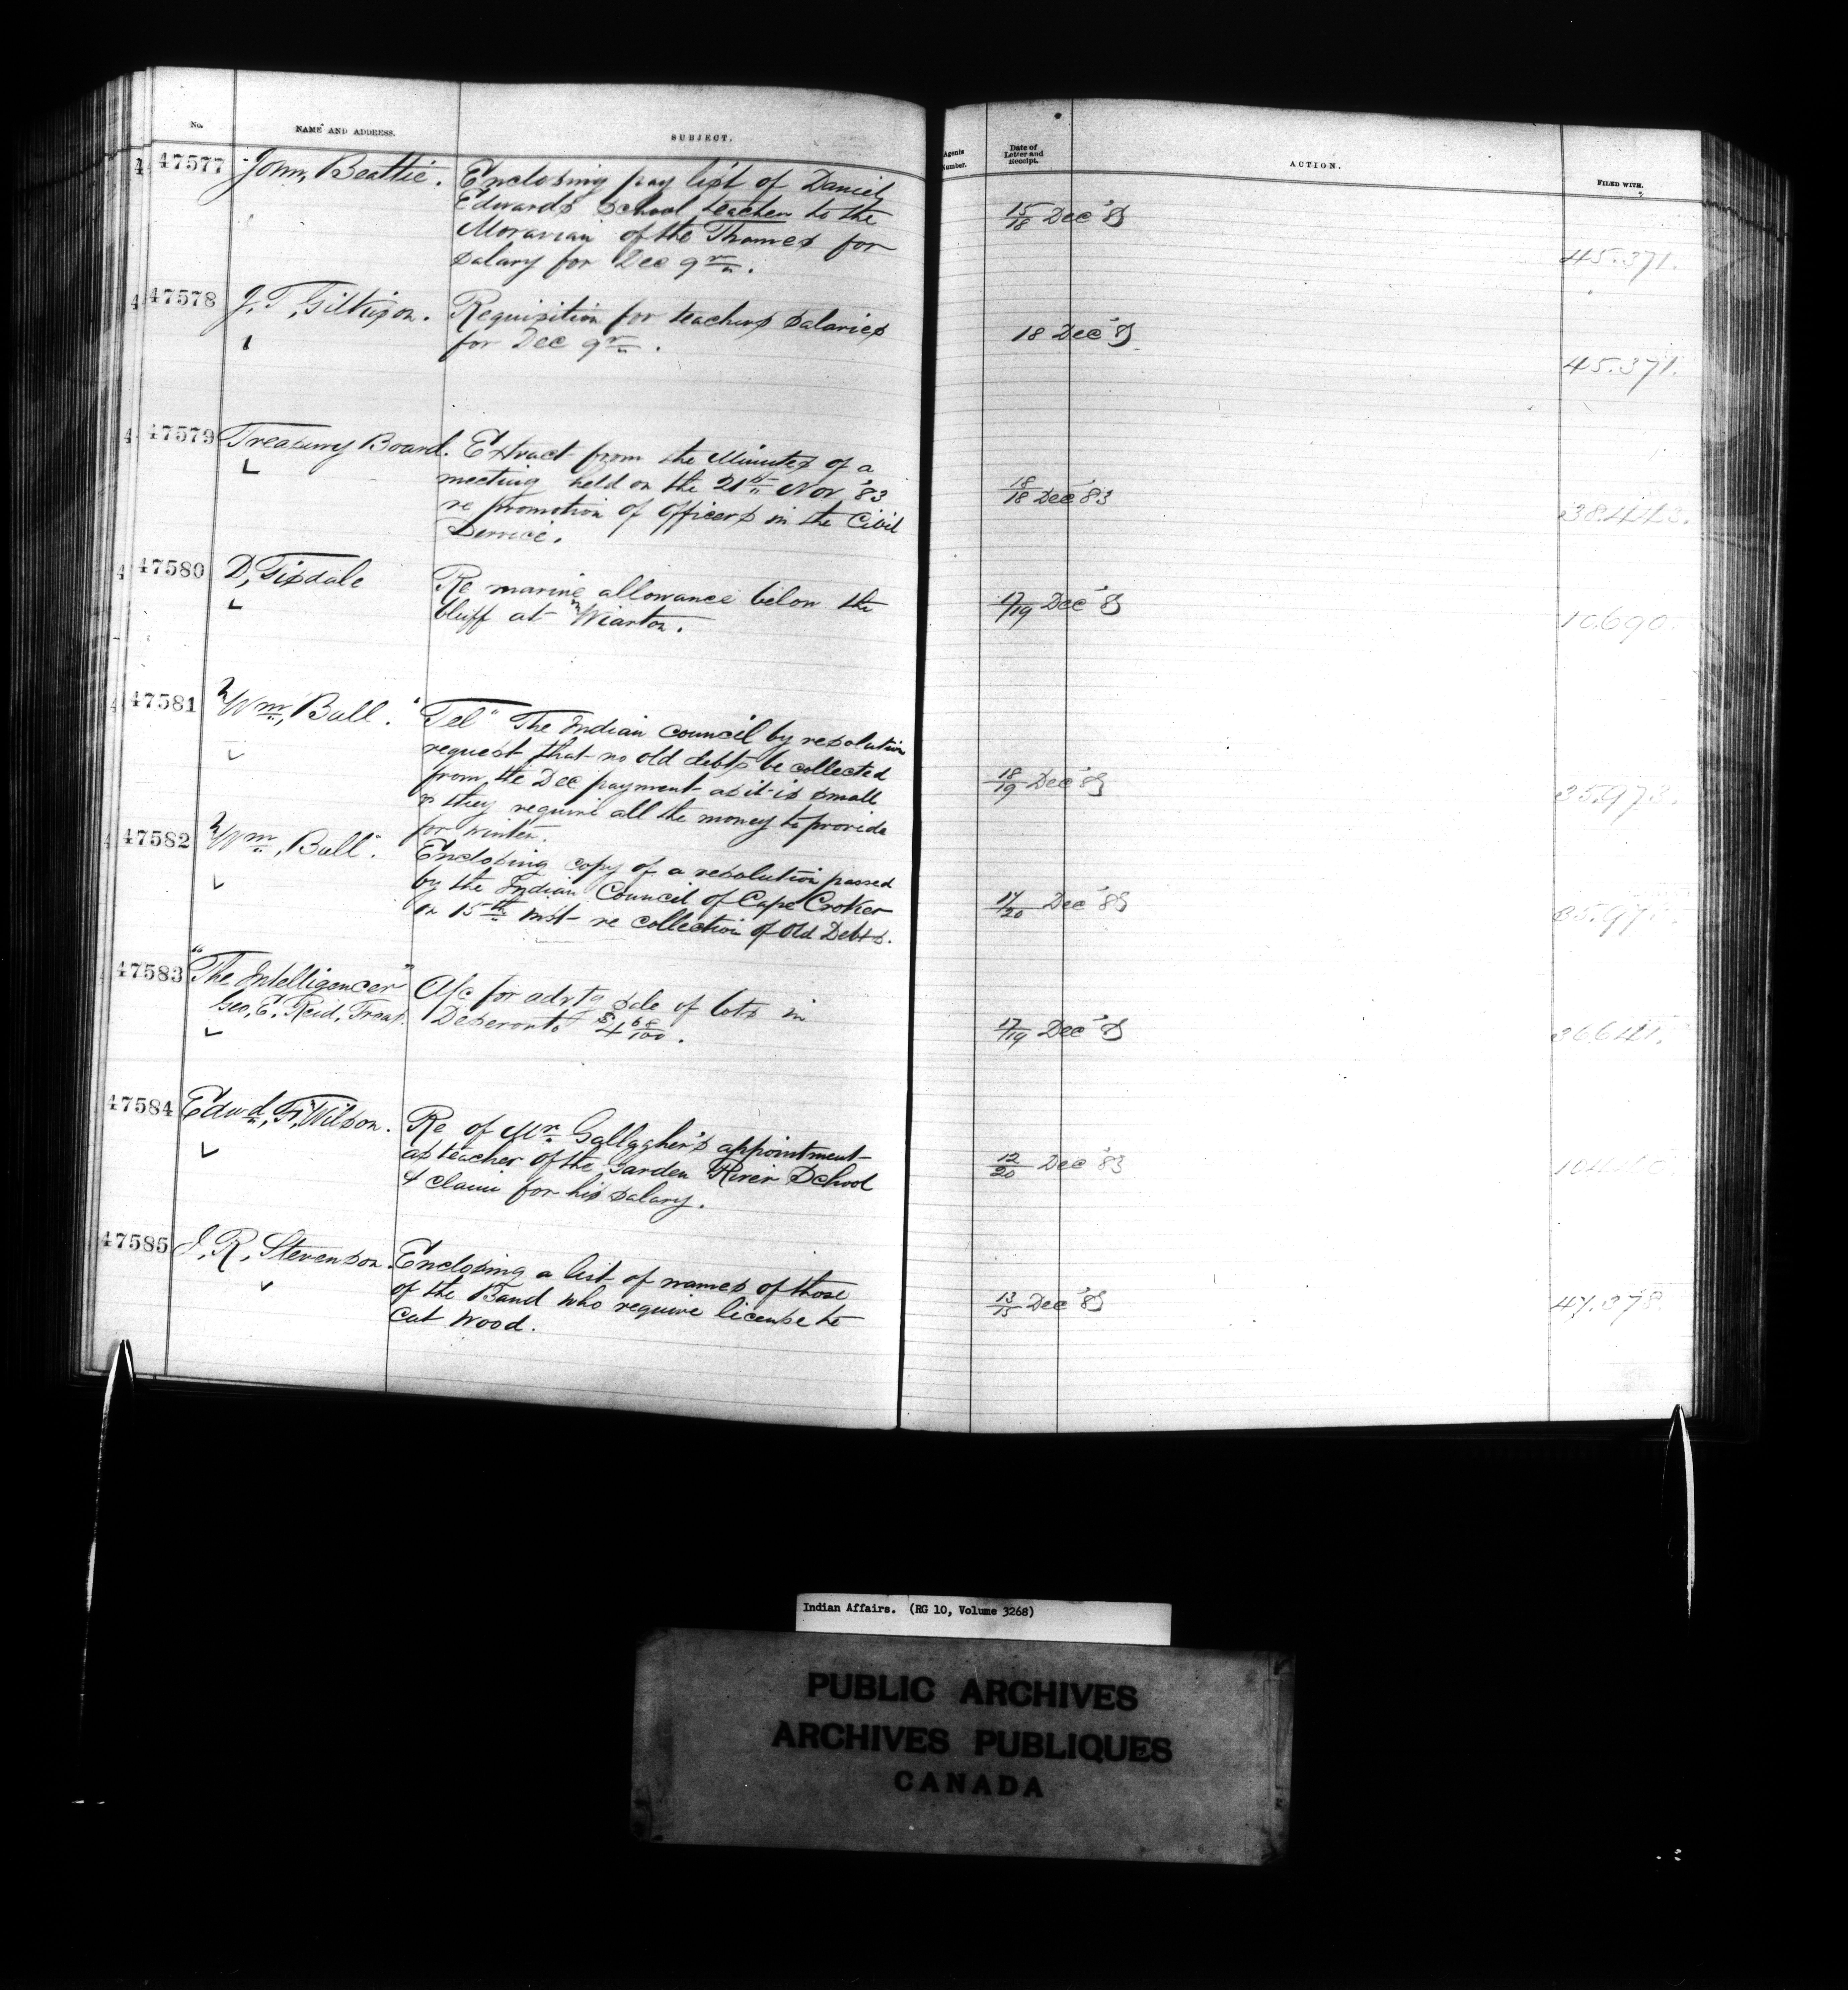 No. NAME AND ADDRESS. SUBJECT.
47577 John, Beattie. Enclosing pay list of Daniel
Edwards school teacher to the
Moravian of the Thames for
salary for Dec qr.
47578 J. T. Gilkison. Requisition for teachers salaries
for Dec qr.
47579 Treasury Board. Extract from the Minutes of a
meeting held on the 21st Nov '83
re promotion of officers in the Civil
Service.
47580 D, Tisdale Re marine allowance below the
bluff at Wiarton.
47581 Wm, Bull. "Tel" The Indian council by resolution
request that no old debts be collected
from the Dec payment as it is small
& they require all the money to provide
for winter.
47582 Wm, Bull. Enclosing copy of a resolution passed
by the Indian Council of Cape Croker
on 15th inst re collection of Old Debts.
47583 "The Intelligencer" A/c for advtg sale of lots in
Geo, E. Reid, Treas. Deseronto
47584 Edwd, F, Wilson. Re of Mr Gallagher's appointment
as teacher of the Garden River School
& claim for his salary.
47585 J. R. Stevenson. Enclosing a list of names of those
of the Band who require license to
cut wood.
Agents Number. Date of Letter and Receipt. ACTION. FILED WITH.
15/18 Dec '83
45.371.
18 Dec '83
45.371.
18/18 Dec '83
17/19 Dec '83
10690.
18/19 Dec '83
35.973.
17/20 Dec '83
17/19 Dec '83
12/20 Dec '83
13/15 Dec '83
47.378
Indian Affairs. (RG 10, Volume 3268)
PUBLIC ARCHIVES
ARCHIVES PUBLIQUES
CANADA